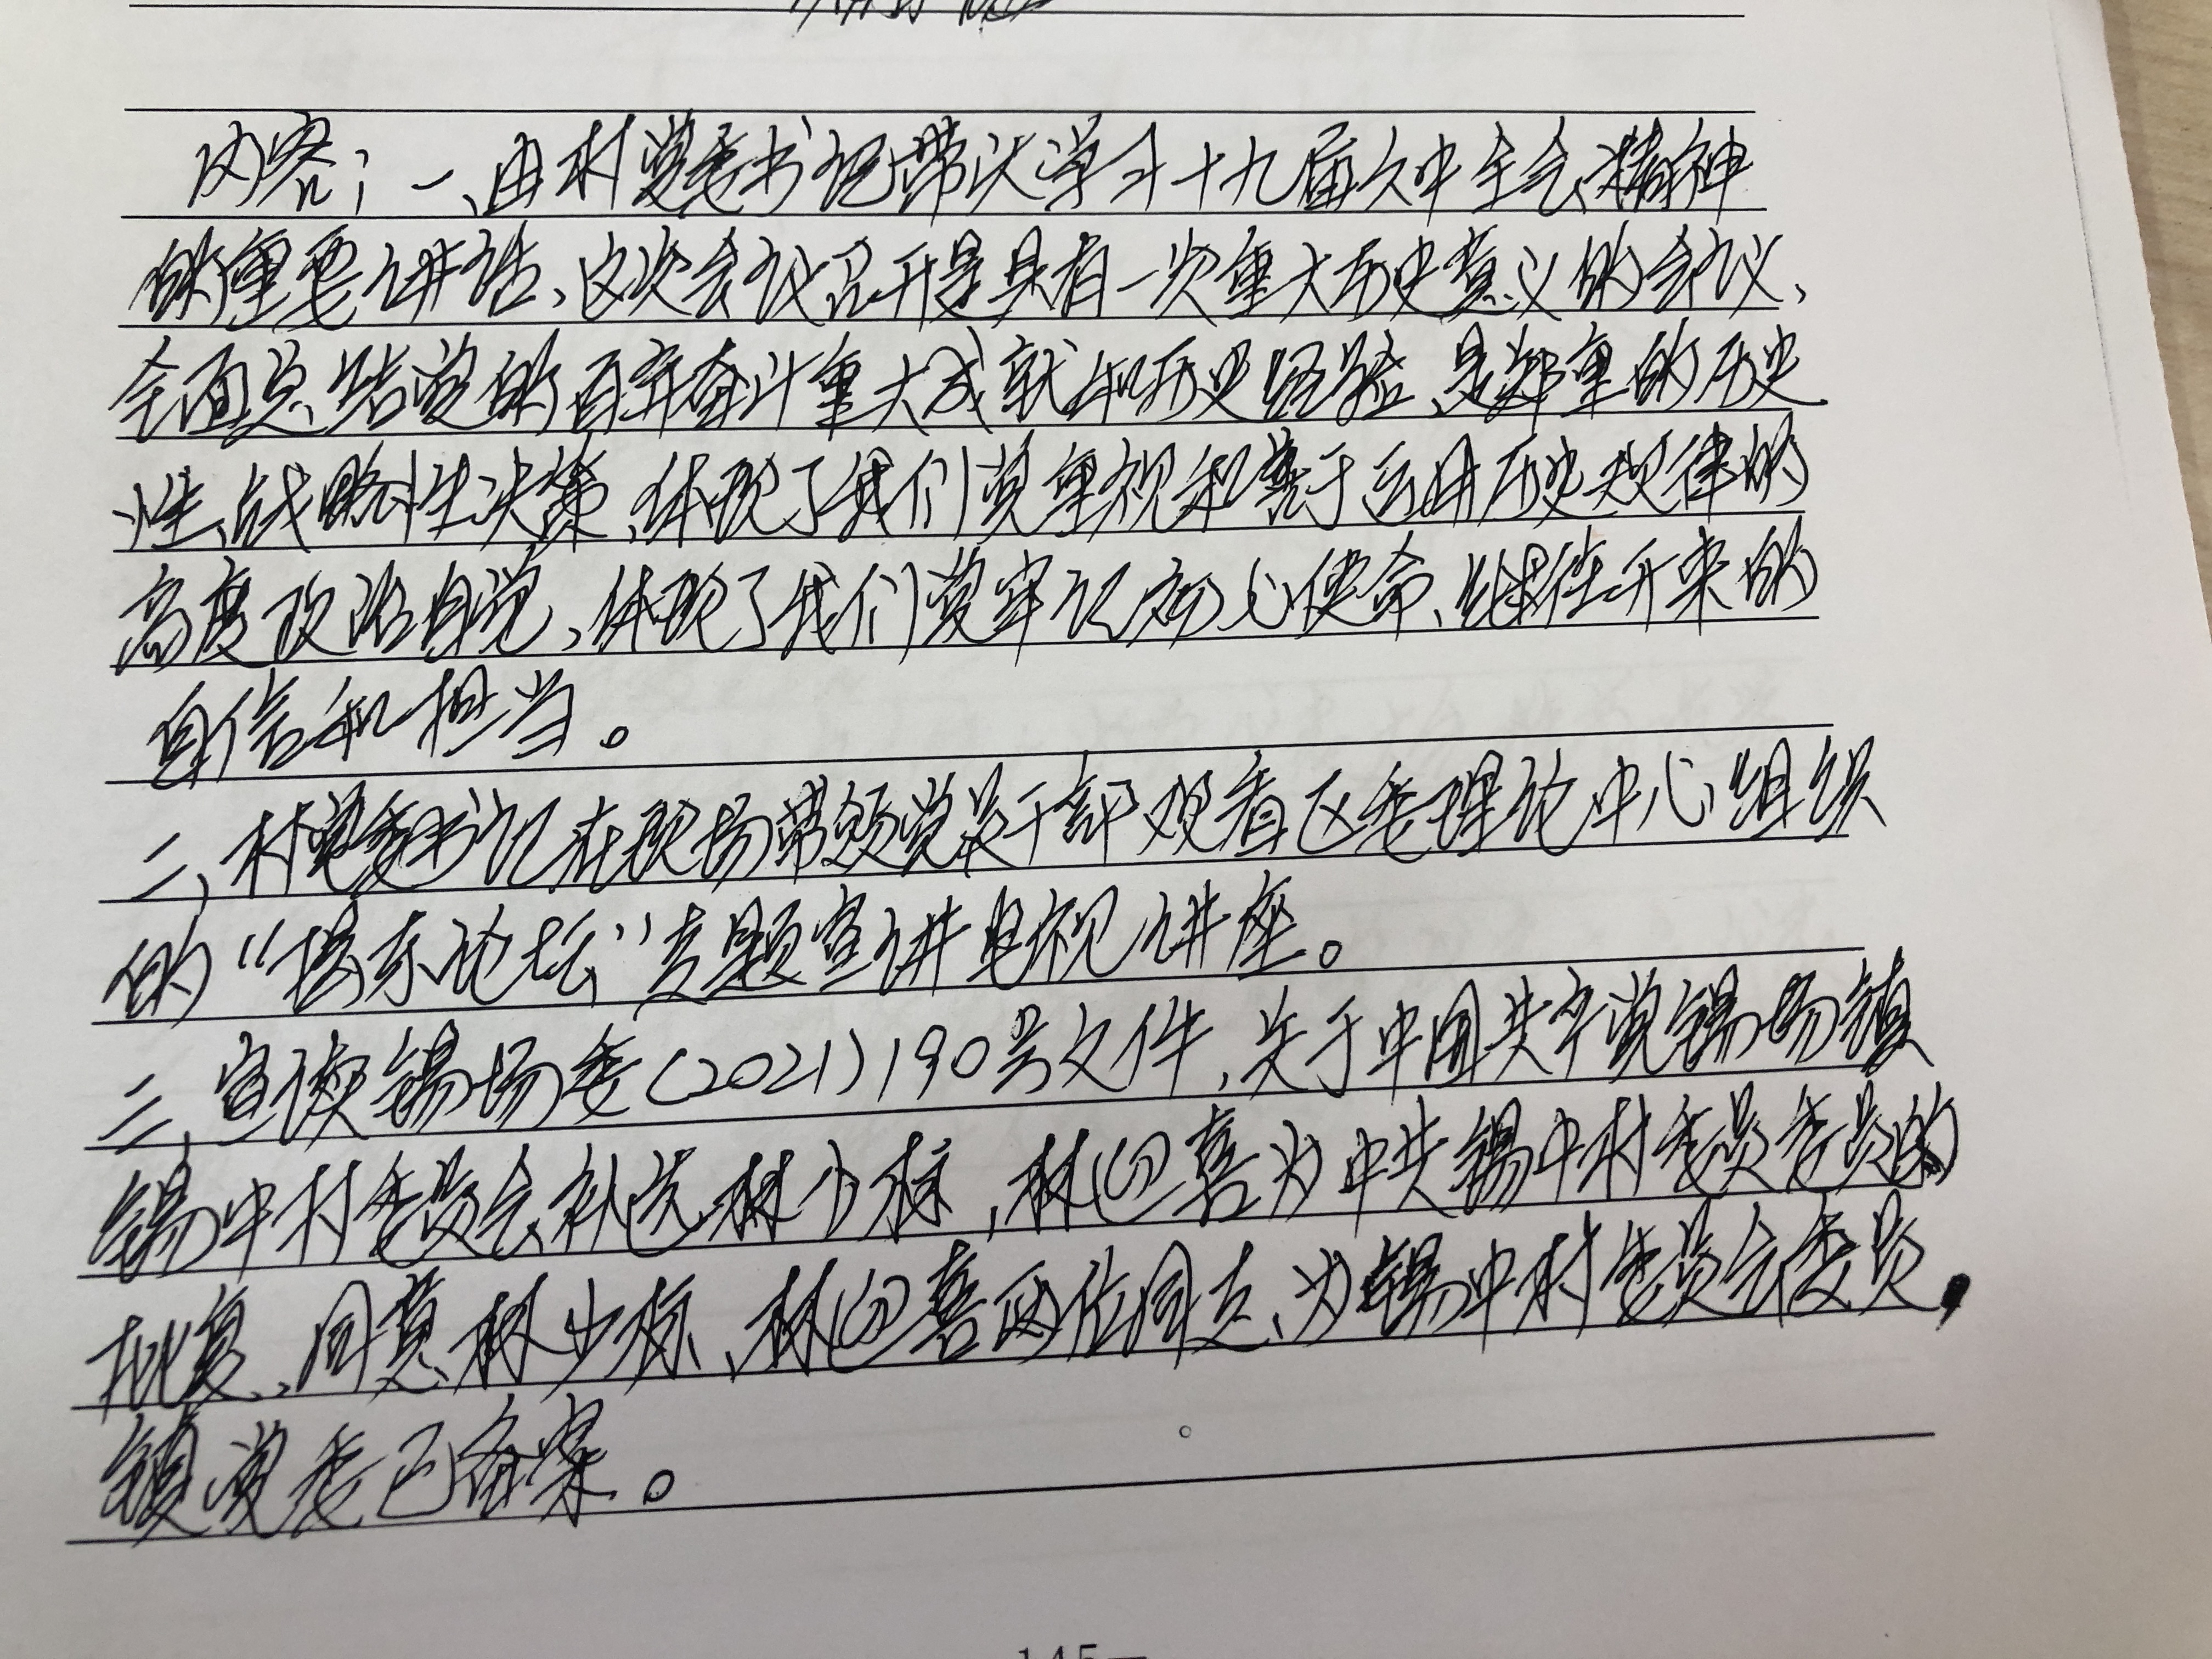 内容：一、由村党委书记带队学习十九届六中全会精神
的重要讲话、这次会议召开是具有一次重大历史意义的会议、
全面总结党的百年奋斗重大成就和历史经验、是郑重的历史
性、战略性决策、体现了我们党重视和善于运用历史规律的
高度政治自觉、体现了我们党牢记初心使命、继往开来的
自信和担当。
二、村党委书记在现场带领党员干部观看区委理论中心组织
的“揭东论坛”专题宣讲电视讲座。
三、宣读锡场委（2021）190号文件，关于中国共产党锡场镇
锡中村委员会补选林少标，林 喜为中共锡中村委员委员的
批复、同意林少标、林 喜两位同志、为锡中村委员会委员，
镇党委已备案。
145